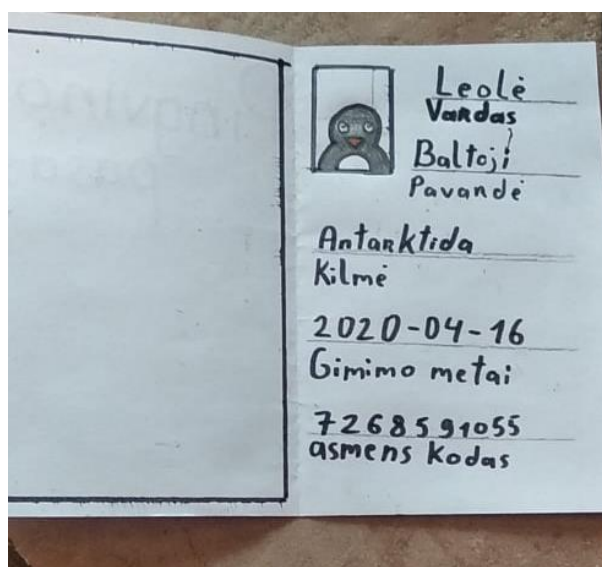 Leolė
Vardas
Baltoji
Pavandė
Antarktida
Kilmė
2020-04-16
Gimimo metai
7268591055
asmens kodas